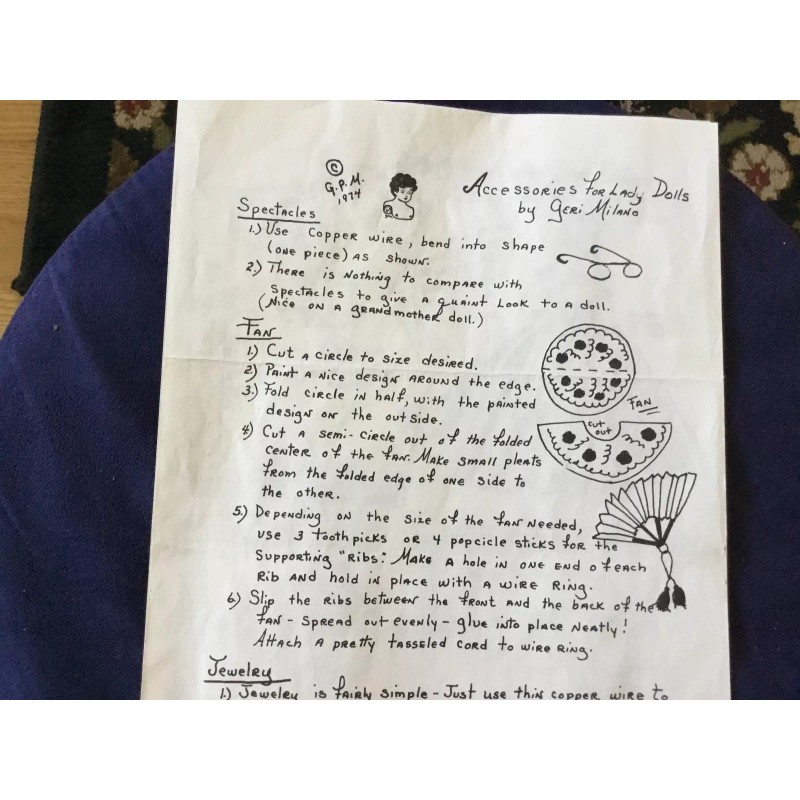 ©
G.P.M.
1974
Accessories for Lady Dolls
by Geri Milano
Spectacles
1.) Use copper wire, bend into shape
(one piece) as shown.
2.) There is nothing to compare with
spectacles to give a quaint look to a doll.
(Nice on a grandmother doll.)
Fan
1.) Cut a circle to size desired.
2.) Paint a nice design around the edge.
3.) Fold circle in half, with the painted
design on the outside.
Fan
4.) Cut a semi-circle out of the folded
center of the fan. Make small pleats
from the folded edge of one side to
the other.
cut
out
5.) Depending on the size of the fan needed,
use 3 toothpicks or 4 popcicle sticks for the
supporting "Ribs." Make a hole in one end of each
Rib and hold in place with a wire ring.
6.) Slip the ribs between the front and the back of the
fan - spread out evenly - glue into place neatly!
Attach a pretty tasseled cord to wire ring.
Jewelry
1.) Jewelry is fairly simple - Just use thin copper wire to